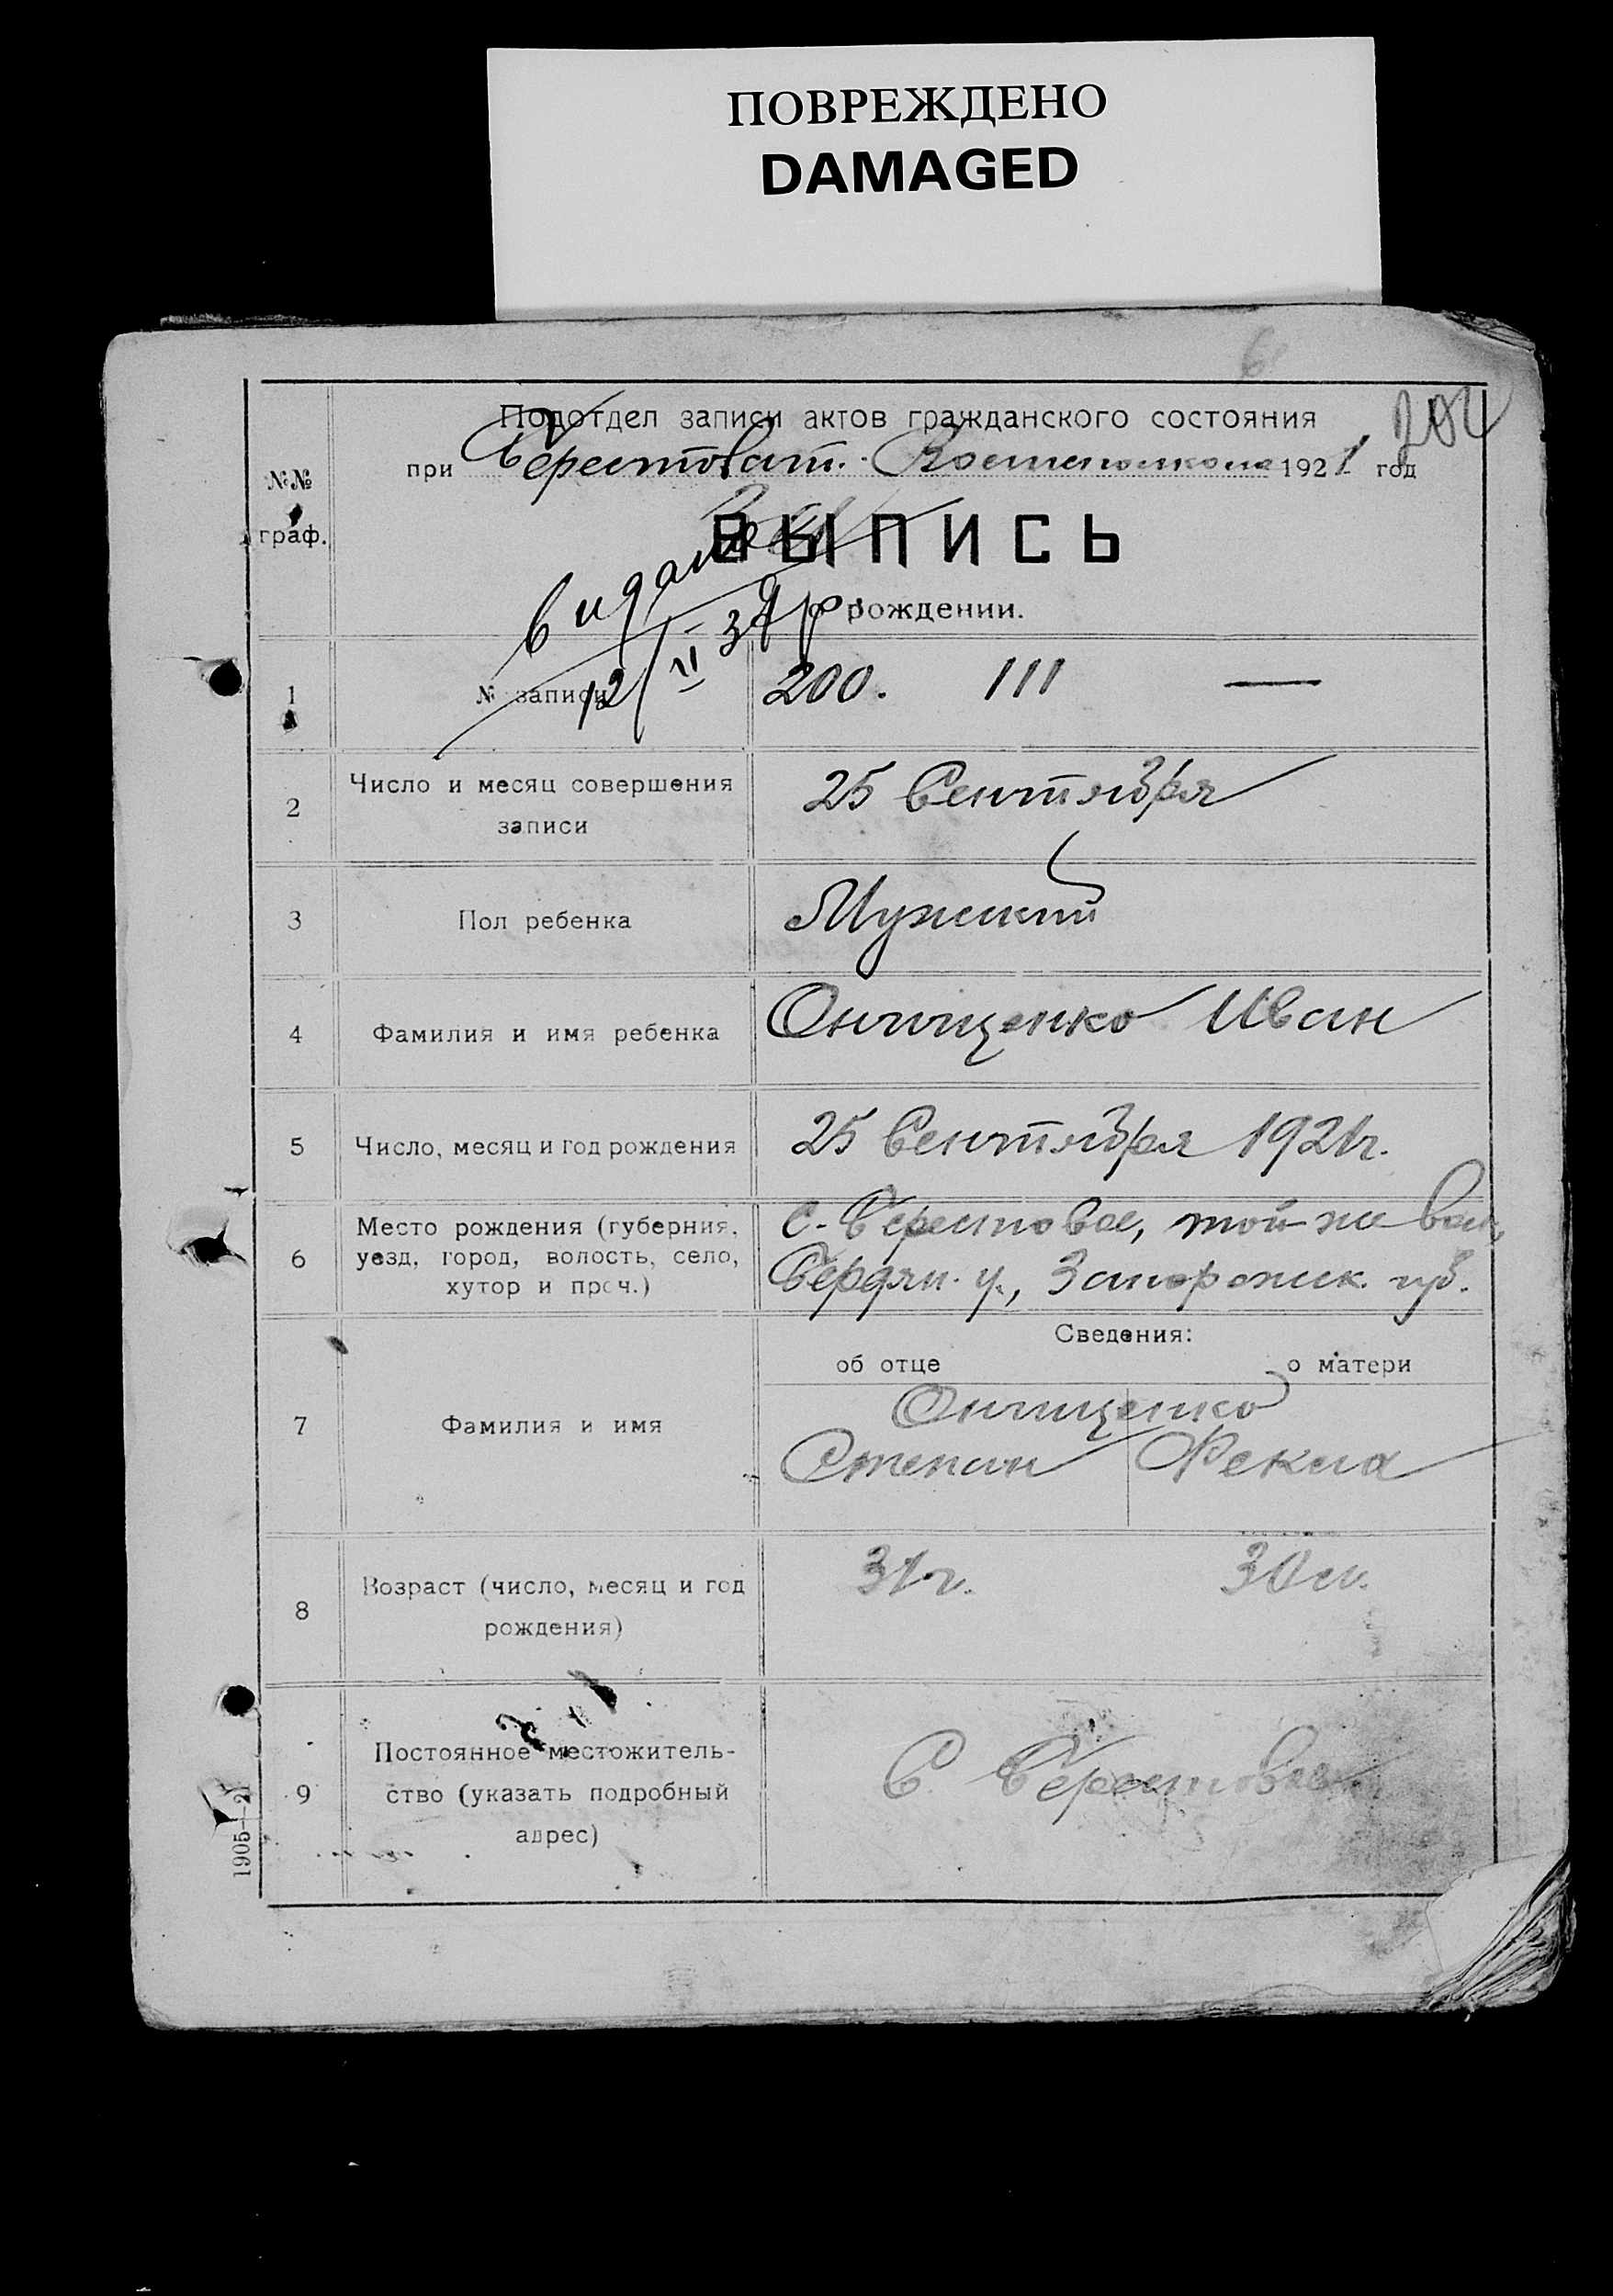 ПОВРЕЖДЕНО
DAMAGED
6
204
Подотдел записи актов гражданского состояния
при Берестоват. 1921 год
№№
граф.
ВЫПИСЬ
о рождении.
видано
12/II 39 р
1 № записи 200. III —
2 Число и месяц совершения
записи
25 Сентября
3 Пол ребенка Мужский
4 Фамилия и имя ребенка Онищенко Иван
5 Число, месяц и год рождения 25 Сентября 1921г.
6 Место рождения (губерния,
уезд, город, волость, село,
хутор и проч.)
с. Берестовое, той-же вол,
Бердян. у., Запорожск. губ.
Сведения:
об отце о матери
7 Фамилия и имя
Онищенко
Степан Фекла
8 Возраст (число, месяц и год
рождения)
31г. 30 л.
9 Постоянное местожитель-
ство (указать подробный
адрес)
С. Берестовое
1905—21